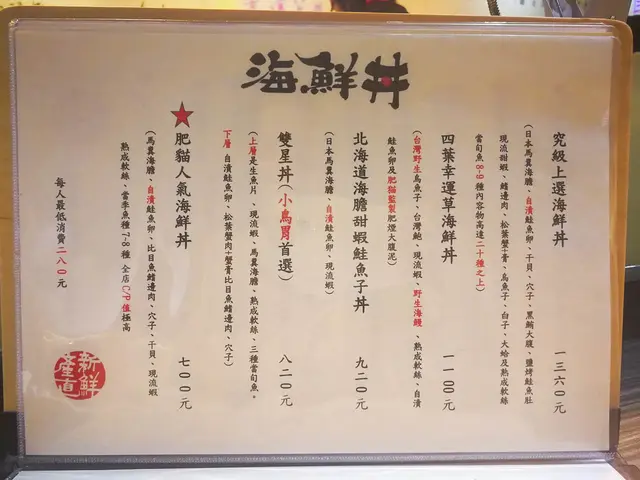 海鮮丼
究級上選海鮮丼 一三六0元
(日本馬糞海膽、自漬鮭魚卵、干貝、穴子、黑鮪大腹、鹽烤鮭魚肚
現流甜蝦、鰭邊肉、松葉蟹+膏、烏魚子、白子、大蛤及熟成軟絲
當旬魚8-9種內容物高達二十種之上)
四葉幸運草海鮮丼 一一00元
(台灣野生烏魚子、台灣鮑、現流蝦、野生海鰻、熟成軟絲、自漬
鮭魚卵及肥貓監製肥煙大腹泥)
北海道海膽甜蝦鮭魚子丼 九二0元
(日本馬糞海膽、自漬鮭魚卵、現流蝦)
雙星丼(小鳥胃首選) 八二0元
(上層是生魚片、現流蝦、馬糞海膽、熟成軟絲、三種當旬魚。
下層 自漬鮭魚卵、松葉蟹肉+蟹膏比目魚鰭邊肉、穴子)
★肥貓人氣海鮮丼 七00元
(馬糞海膽、自漬鮭魚卵、比目魚鰭邊肉、穴子、干貝、現流蝦
熟成軟絲、當季魚種7-8種 全店C/P值極高
每人最低消費二八0元
新鮮
產直